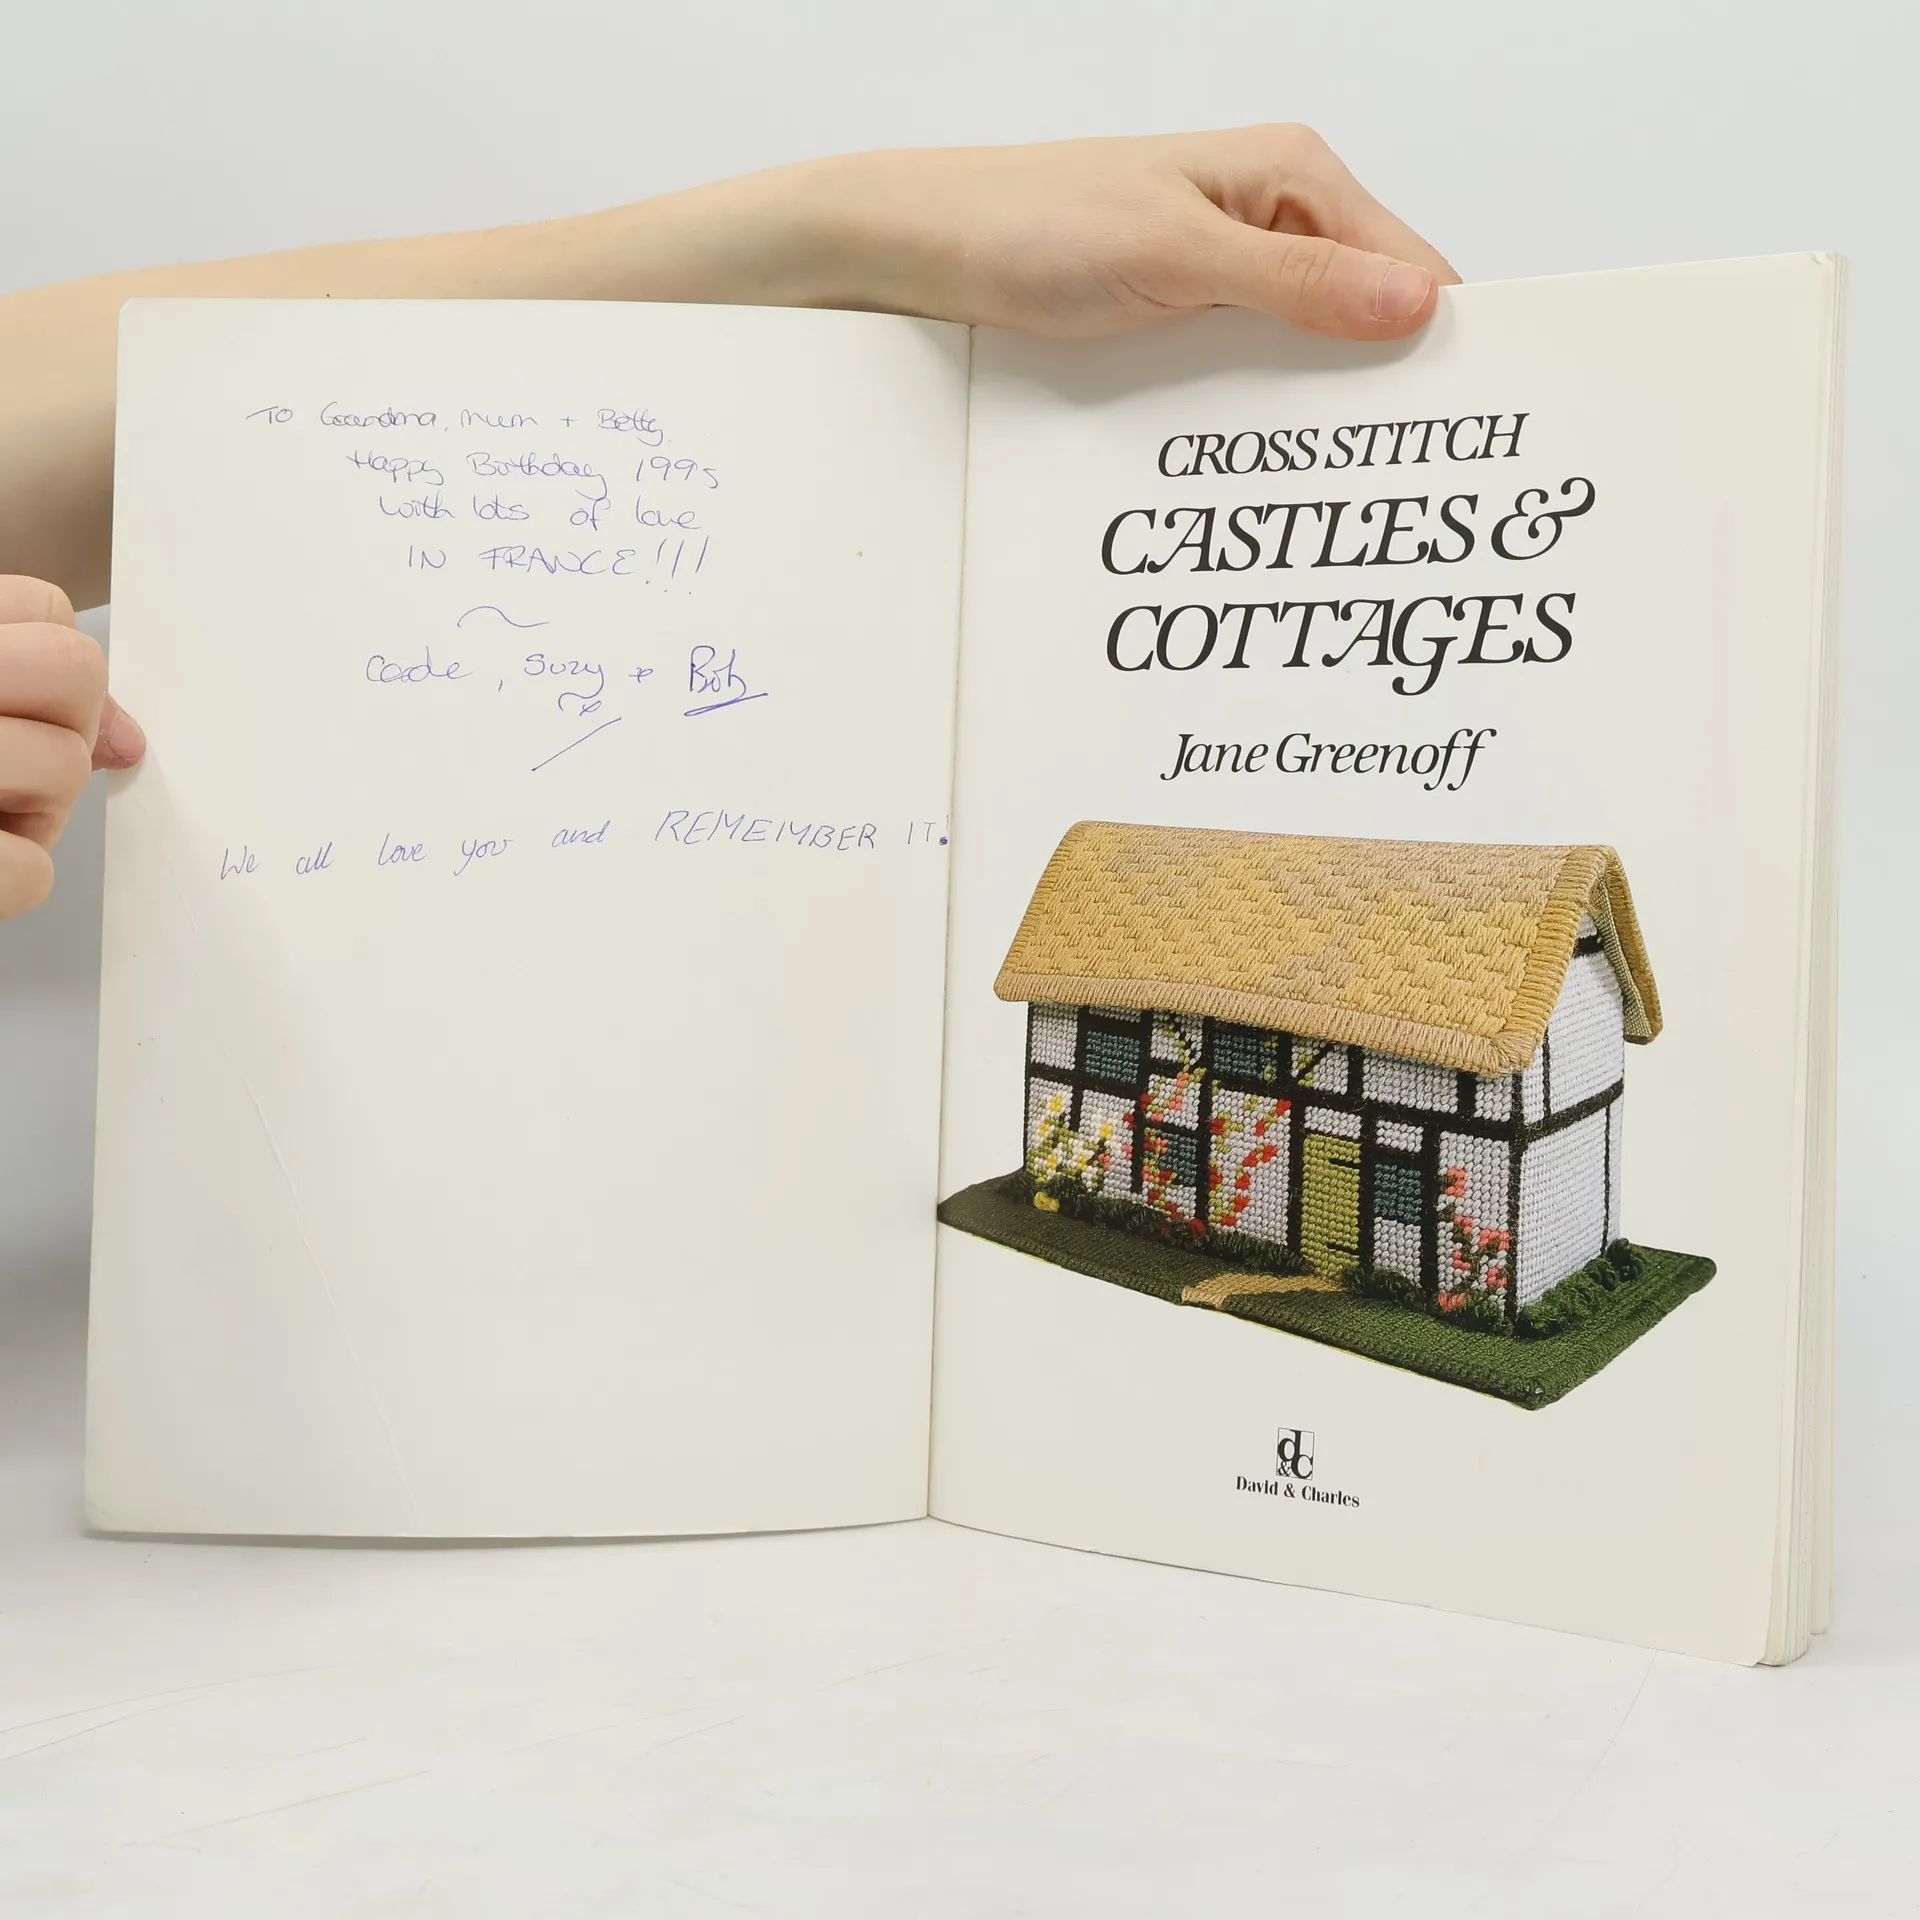 To Grandma, Mum + Betty.
Happy Birthday 1995
with lots of love
IN FRANCE!!!
, Suzy + Bob
We all love you and REMEMBER IT!
CROSS STITCH
CASTLES &
COTTAGES
Jane Greenoff
d
&c
David & Charles